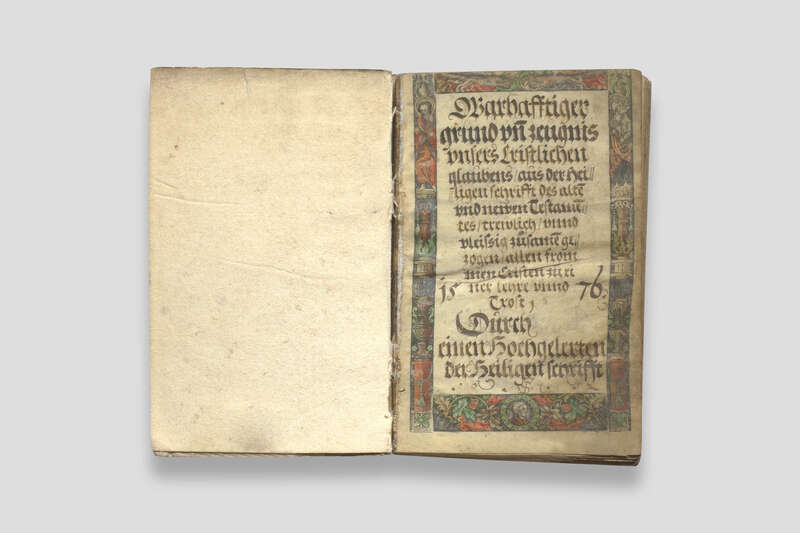 Warhafftiger
grund vn̄ zeugnis
vnsers Cristlichen
glaubens / aus der Hei⸗
ligen schrifft des alten
vnd newen Testamē⸗
tes / trewlich / vnnd
vleissig zusamē ge⸗
zogen / allen from
men Cristen zu ei
15 ner lehre vnnd 76
Trost
Durch
einen Hochgelerten
der Heiligen schrifft